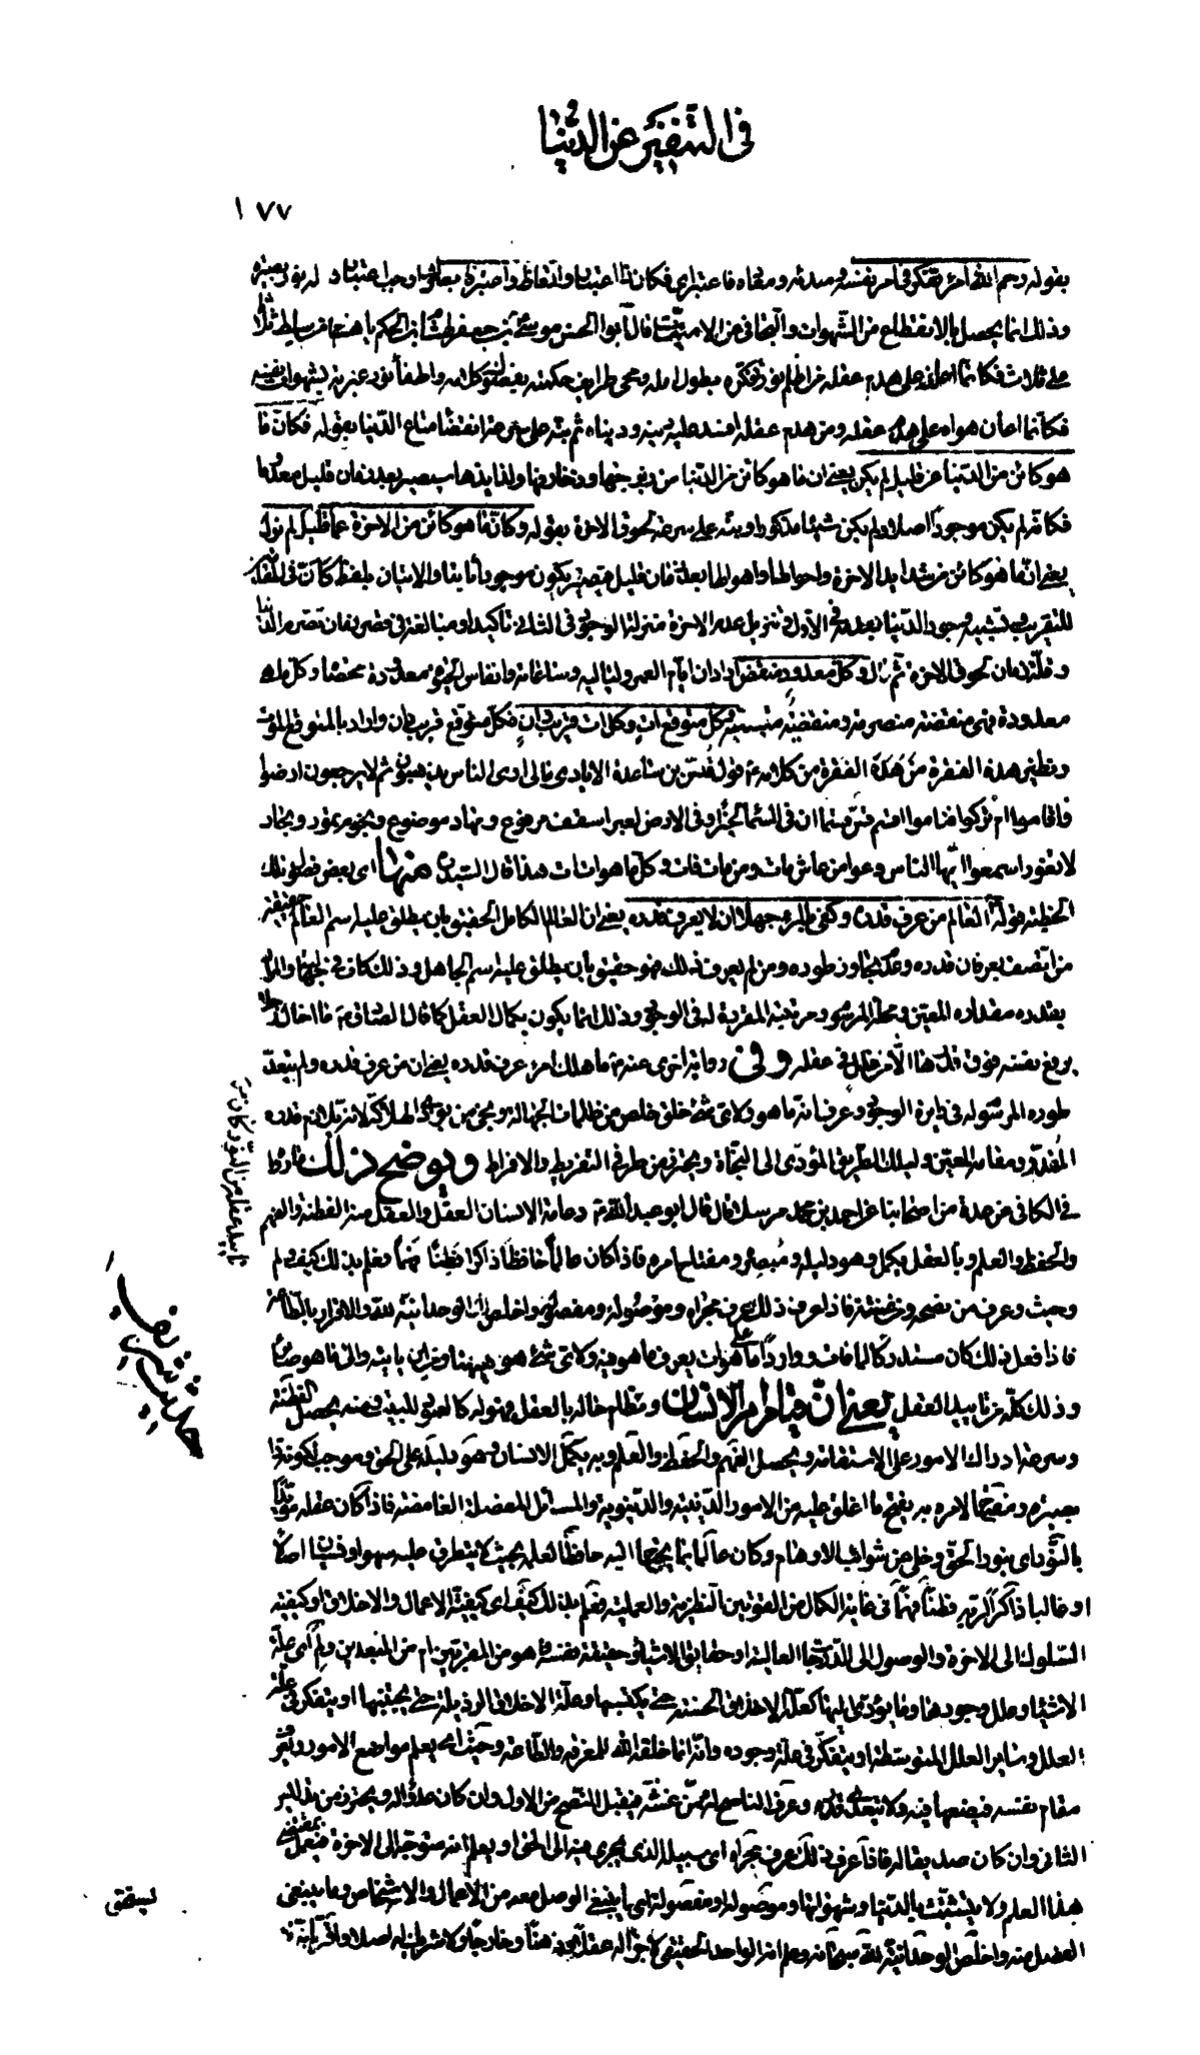 فى التنفير عن الدنيا
١٧٧
بقوله رحم الله امرء تفكر فى امر نفسه و مبدئه و معاده فاعتبر اى فكان ذا اعتبار واتعاظ واعتبر فابصر
وذلك انما يحصل بالانقطاع من الشهوات والتجافى عن الامنيات قال ابو الحسن موسى بن جعفر لهشام بن الحكم يا هشام من سلط ثلاثا
على ثلاث فكانما اعان على هدم عقله من اظلم نور تفكره بطول امله و محى طرايف حكمته بفضول كلامه واطفأ نور عبرته بشهوات نفسه
فكانما اعان هواه على هدم عقله ومن هدم عقله افسد عليه دينه ودنياه ثم نبه على سرعة انقضاء متاع الدنيا بقوله فكان ما
هو كائن من الدنيا عن قليل لم يكن يعنى ان ما هو كائن من الدنيا من زبرجها وزخارفها ولذايذها سيصير بعد زمان قليل معدوما
فكانه لم يكن موجودا اصلا ولم يكن شيئا مذكورا ونبه على سرعة لحوق الاخرة بقوله وكان ما هو كائن من الاخرة عما قليل لم يزل
يعنى ان ما هو كائن من شدايد الاخرة واهوالها بعد زمان قليل يكون موجودا ثابتا والاتيان بلفظ كان فى المقامين
للتقريب وتشبيه وجود الدنيا بعدمه فى الاول وتنزيل عدم الاخرة منزلة الوجود فى الثانى تاكيدا ومبالغة فى قصر زمان تصرم الدنيا
وقلة زمان لحوق الاخرة ثم قال وكل معدود منقض اراد ان ايام العمر ولياليه وساعاته وانفاس معدودة محصاة وكل
معدودة فهى منقضية منصرمة وكل متوقع ات وكل ات قريب دان فكل متوقع قريب دان واراد بالمتوقع الموت
ونظير هذه الفقرة من كلامه قول قس بن ساعدة الايادى مالى ارى الناس يذهبون ثم لا يرجعون ارضوا
فاقاموا ام تركوا فناموا ان فى السماء لخبرا وفى الارض لعبرا سقف مرفوع و مهاد موضوع ونجوم تمور وبحار
لا تغور اسمعوا ايها الناس وعوا من عاش مات ومن مات فات وكل ما هو ات ات قال السيد ره منها اى بعض فصول تلك
الخطبة قوله العالم من عرف قدره وكفى بالمرء جهلا ان لا يعرف قدره يعنى ان العالم الكامل الحقيق بان يطلق عليه اسم العالم
من اتصف بعرفان قدره ولم يتجاوز طوره ومن لم يعرف ذلك فهو حقيق بان يطلق عليه اسم الجاهل وذلك كان فى جهله والمراد
بقدره مقداره المعين ومحله المرسوم ومرتبته المقررة له فى الوجود وذلك انما يكون بكمال العقل كما قال الصادق ع ما اخال رجلا
يرفع نفسه فوق قدرها الا من خلل فى عقله وفى رواية اخرى عنه ع ما هلك امرء عرف قدره يعنى ان من عرف قدره ولم يتعد
طوره المرسوم له فى دايرة الوجود وعرف انه ما هو ولاى شىء خلق خلص من ظلمات الجهالة ونجى من الهلاكة لانه يلازم قدره
المقدر ومقامه المعين ويسلك الطريق المؤدى الى النجاة ويحترز من طرفى التفريط والافراط ويوضح ذلك ما رواه
فى الكافى عن عدة من اصحابنا عن احمد بن محمد مرسلا قال قال ابو عبد الله ع دعامة الانسان العقل والعقل منه الفطنة والفهم
والحفظ والعلم وبالعقل يكمل وهو دليله ومبصره ومفتاح امره فاذا كان عالما حافظا ذاكرا فطنا فهما فعلم بذلك كيف ولم
وحيث وعرف من نصحه ومن غشه فاذا عرف ذلك عرف مجراه وموصوله ومفصوله واخلص الوحدانية لله والاقرار بالطاعة
فاذا فعل ذلك كان مستدركا لما فات وواردا على ما هو ات يعرف ما هو فيه ولاى شىء هو هيهنا ومن اين ياتيه والى ما هو صاير
وذلك كله من تاييد العقل يعنى ان قيام امر الانسان ونظام حاله بالعقل فمنه يحصل الفطنة
وسرعة ادراك الامور على الاستقامة ويحصل الفهم والحفظ والعلم وبه يكمل الانسان وهو دليله على الحق وموجب لكونه ذا
بصيرة ومفتاح لامره به يفتح ما اغلق عليه من الامور الدينية والدنيوية والمسائل المعضلة الغامضة فاذا كان عقله مؤيدا
بالنور اى بنور الحق وخلى عن شوائب الاوهام وكان عالما بما يحتاج اليه حافظا لعلمه بحيث لا يتطرق عليه سهو او نسيان اصلا
او غالبا ذاكرا لربه فطنا فهما فى غاية الكمال من القوتين النظرية والعملية فعلم بذلك كيف اى كيفية الاعمال والاخلاق او كيفية
السلوك الى الاخرة والوصول الى الدرجات العالية او حقايق الاشياء وحقيقة نفسه هو من المقربين ام من المبعدين ولم اى علة
الاشياء وعلل وجودها وما يؤدى اليها كعلة الاخلاق الحسنة حتى يكتسبها وعلة الاخلاق الرذيلة حتى يجتنبها او يتفكر فى علة
العلل وساير العلل المتوسطة او يتفكر فى علة وجوده وانه انما خلقه الله للمعرفة والطاعة وحيث اى يعلم مواضع الامور ويعرف
مقام نفسه فيضعها فيه ولا يتعدى قدره وعرف الناصح له ممن غشه فيقبل النصح من الاول وان كان عدوا له ويحترز من
الثانى وان كان صديقا له فاذا عرف ذلك عرف مجراه اى سبيله الذى يجرى فيه الى الحق او يعلم انه متوجه الى الاخرة فيعمل بمقتضى
هذا العلم ولا يتشبث بالدنيا وشهواتها وموصوله ومفصوله اى ما ينبغى الوصل معه من الاعمال والاشخاص وما ينبغى
الفصل منه واخلص الوحدانية لله سبحانه وعلم انه الواحد الحقيقى لا جزء له عقلا وذهنا وخارجا ولا شريك له اصلا واقر بانه
تاييد عقله من النور كان من
حديث شريف
يستحق